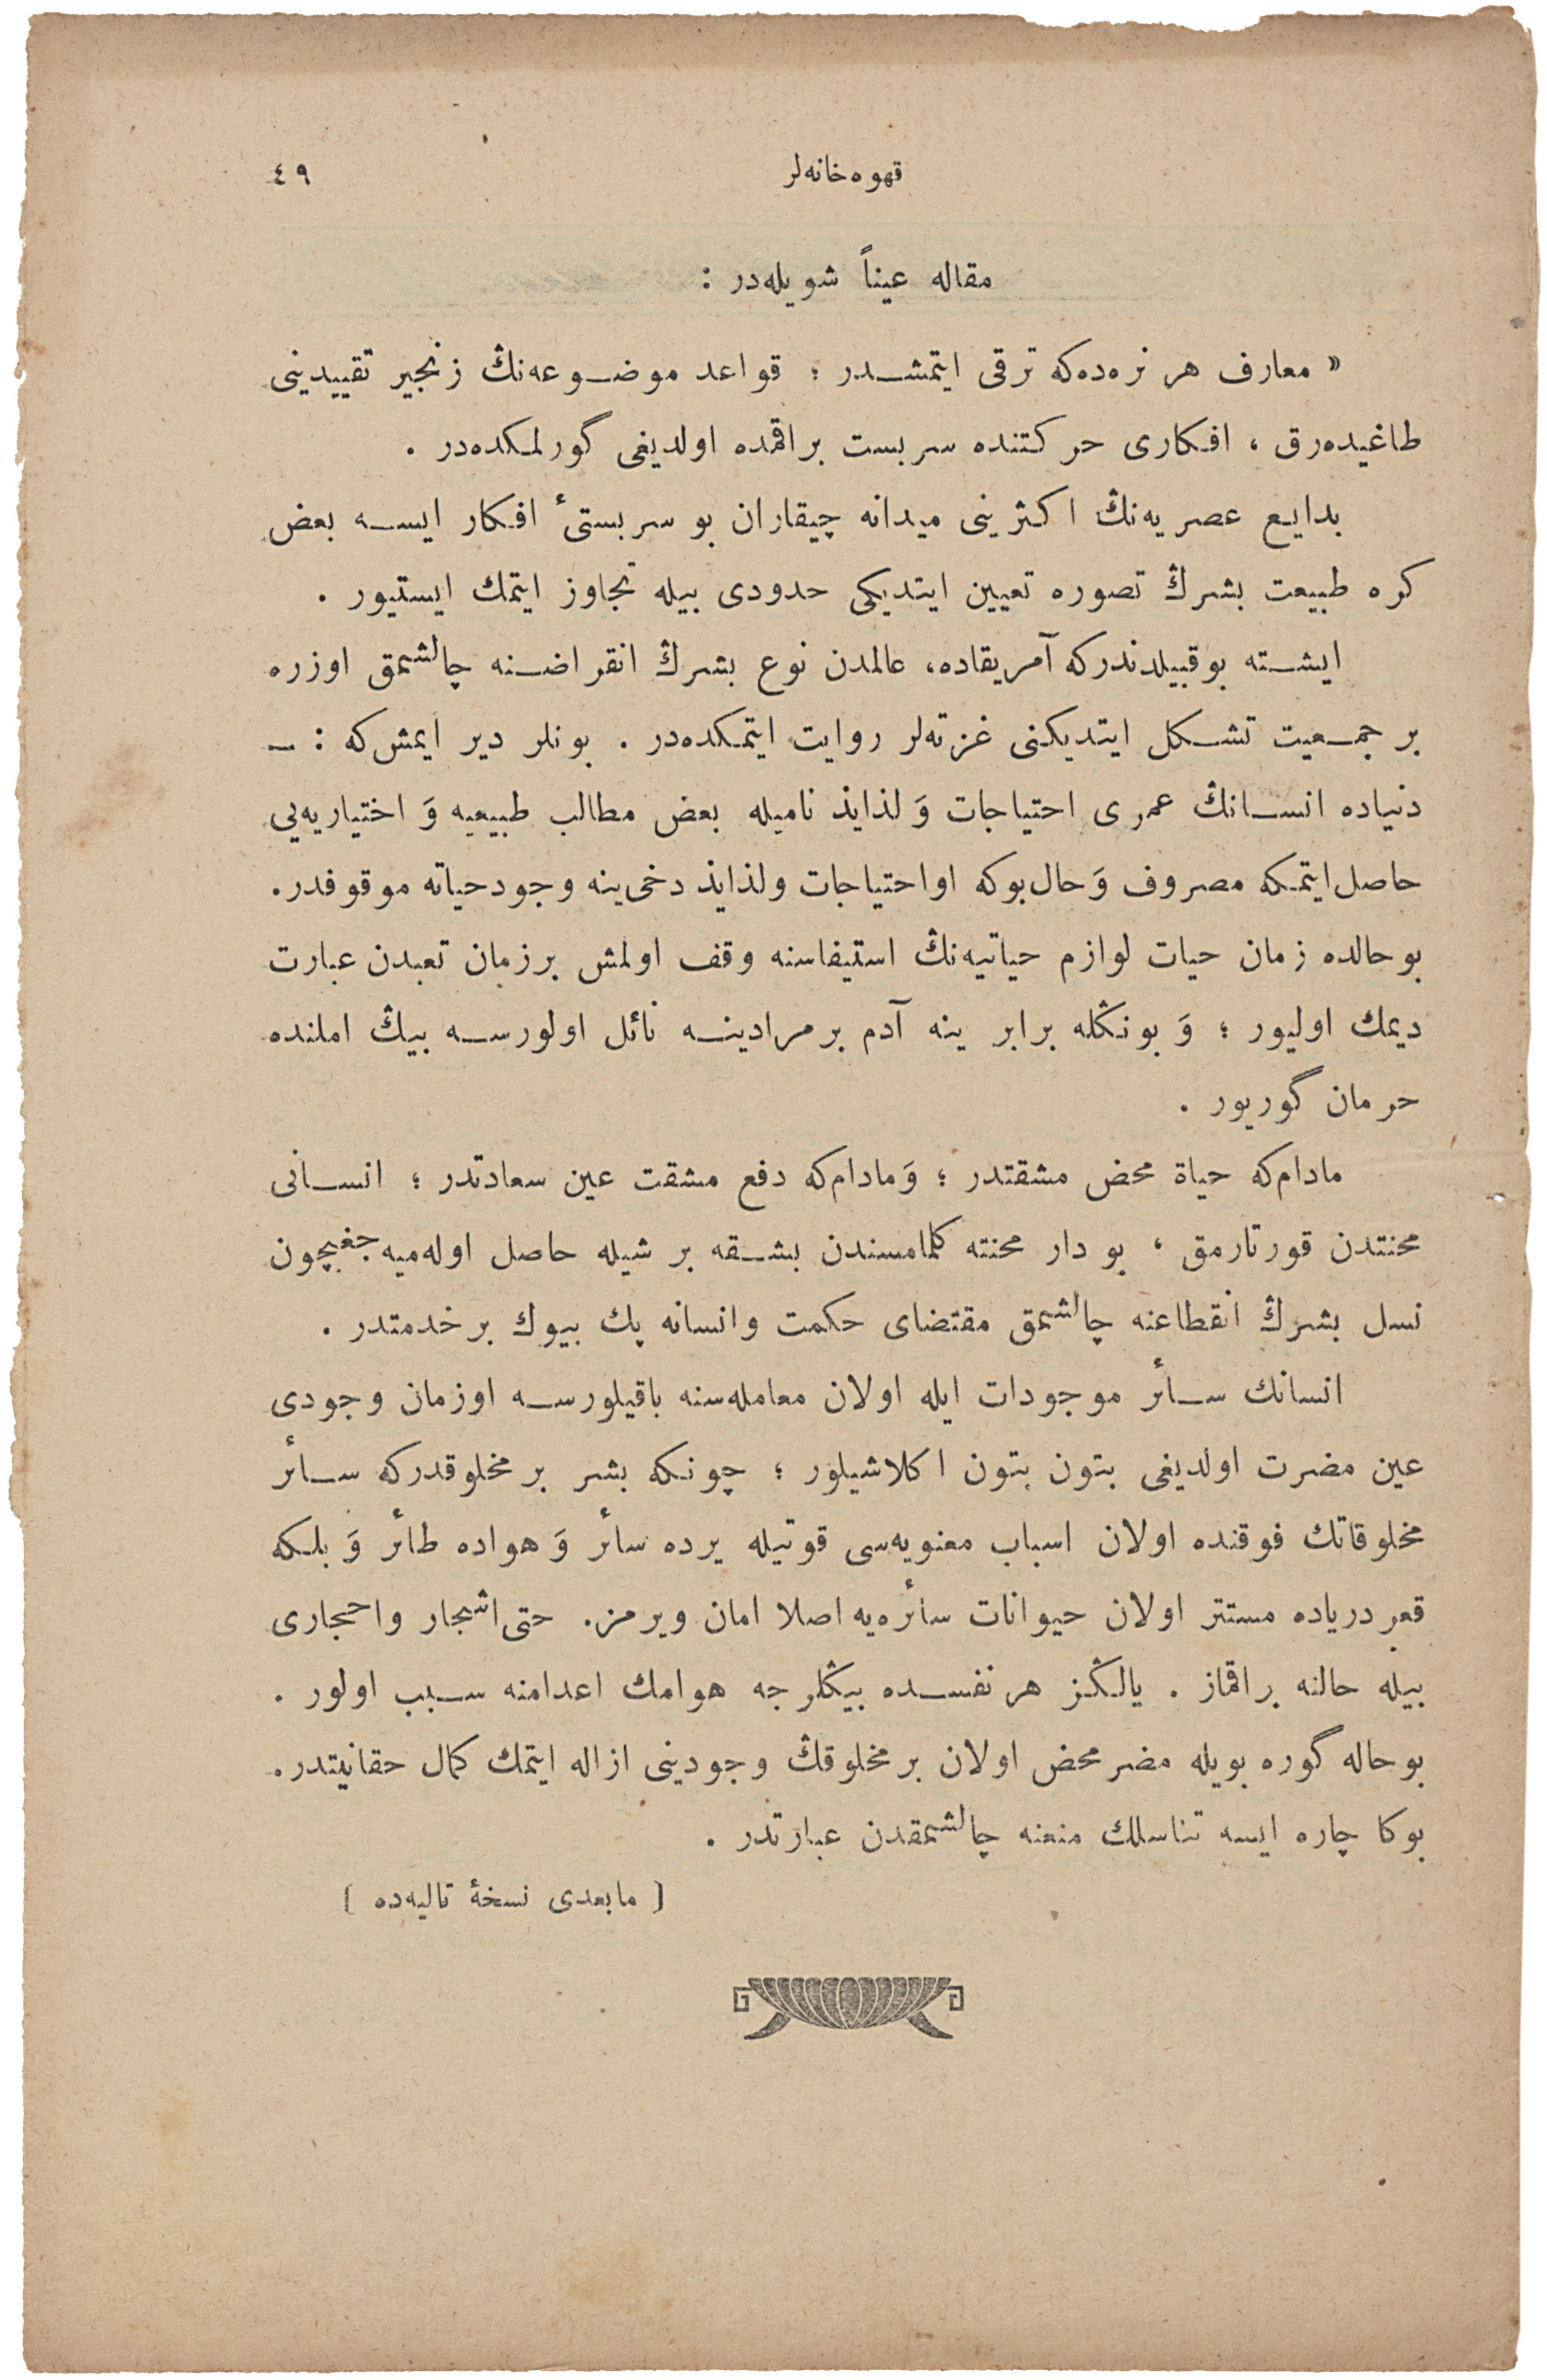 قهوه‌خانه‌لر
٤٩
مقاله عیناً شویله‌در :
« معارف هر نره‌ده‌كه ترقی ایتمشدر ؛ قواعد موضوعه‌نڭ زنجیر تقییدینی
طاغیده‌رق ، افكاری حركتنده سربست براقمده اولدیغی گورلمكده‌در .
بدایع عصریه‌نڭ اكثرینی میدانه چیقاران بو سربستیٔ افكار ایسه بعض
كره طبیعت بشرڭ تصوره تعیین ایتدیكی حدودی بیله تجاوز ایتمك ایستیور .
ایشته بوقبیلدندركه آمریقاده، عالمدن نوع بشرڭ انقراضنه چالشمق اوزره
بر جمعیت تشكل ایتدیكنی غزته‌لر روایت ایتمكده‌در . بونلر دیر ایمش‌كه : ـ
دنیاده انسانڭ عمری احتیاجات وَ لذایذ نامیله بعض مطالب طبیعیه وَ اختیاریه‌یی
حاصل ایتمكه مصروف وَ حال‌بوكه او احتیاجات ولذایذ دخی‌ینه وجود حیاته موقوفدر.
بو حالده زمان حیات لوازم حیاتیه‌نڭ استیفاسنه وقف اولمش بر زمان تعبدن عبارت
دیمك اولیور ؛ وَ بونڭله برابر ینه آدم بر مرادینه نائل اولورسه بیڭ املنده
حرمان گوریور .
مادام‌كه حیاة محض مشقتدر ؛ وَ مادام‌كه دفع مشقت عین سعادتدر ؛ انسانی
محنتدن قورتارمق ، بو دار محنته كلمامسندن بشقه بر شیله حاصل اوله‌میه‌جغیچون
نسل بشرڭ انقطاعنه چالشمق مقتضای حكمت وانسانه پك بیوك بر خدمتدر .
انسانك سائر موجودات ایله اولان معامله‌سنه باقیلورسه اوزمان وجودی
عین مضرت اولدیغی بتون بتون اكلاشیلور ؛ چونكه بشر بر مخلوقدركه سائر
مخلوقاتك فوقنده اولان اسباب معنویه‌سی قوتیله یرده سائر وَ هواده طائر وَ بلكه
قعر دریاده مستتر اولان حیوانات سائره‌یه اصلا امان ویرمز. حتی اشجار واحجاری
بیله حالنه براقماز . یالڭز هر نفسده بیڭلرجه هوامك اعدامنه سبب اولور .
بوحاله گوره بویله مضر محض اولان بر مخلوقڭ وجودینی ازاله ایتمك كمال حقانیتدر.
بوكا چاره ایسه تناسلك منعنه چالشمقدن عبارتدر .
[ مابعدی نسخهٔ تالیه‌ده ]